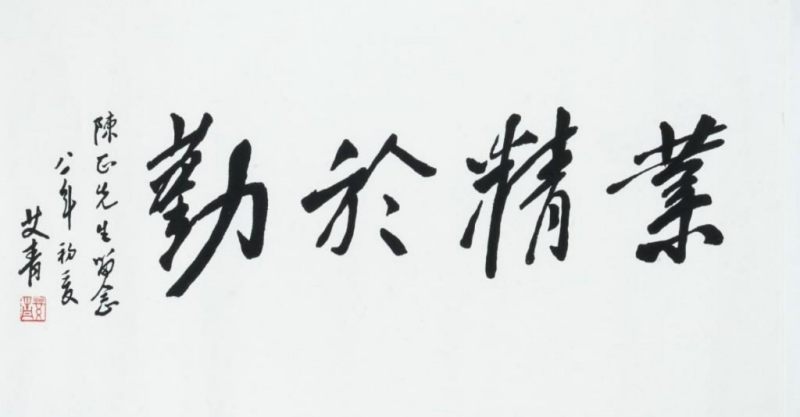 業精於勤
陳正先生留念
年初夏
艾青
艾青